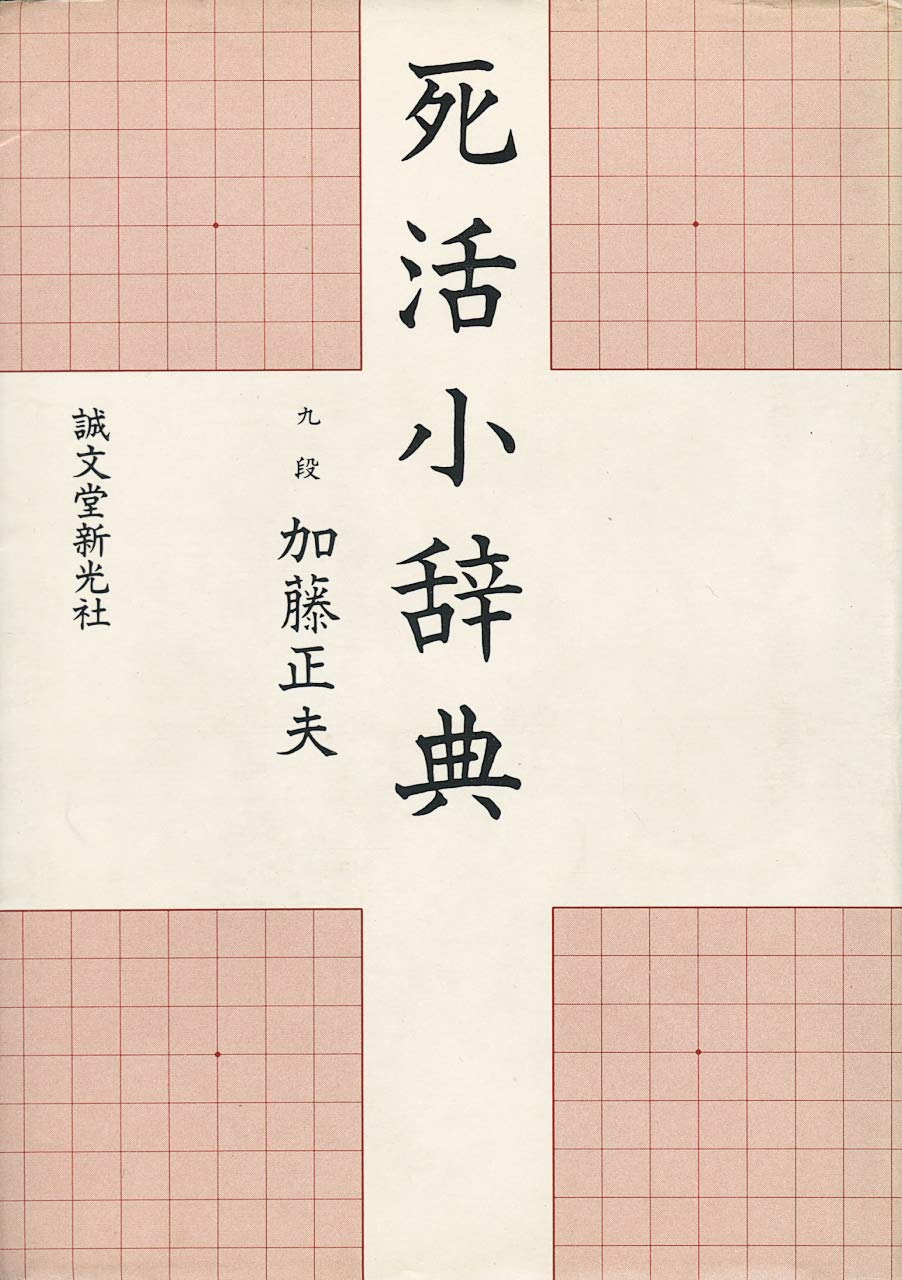 死活小辞典
九段 加藤正夫
誠文堂新光社